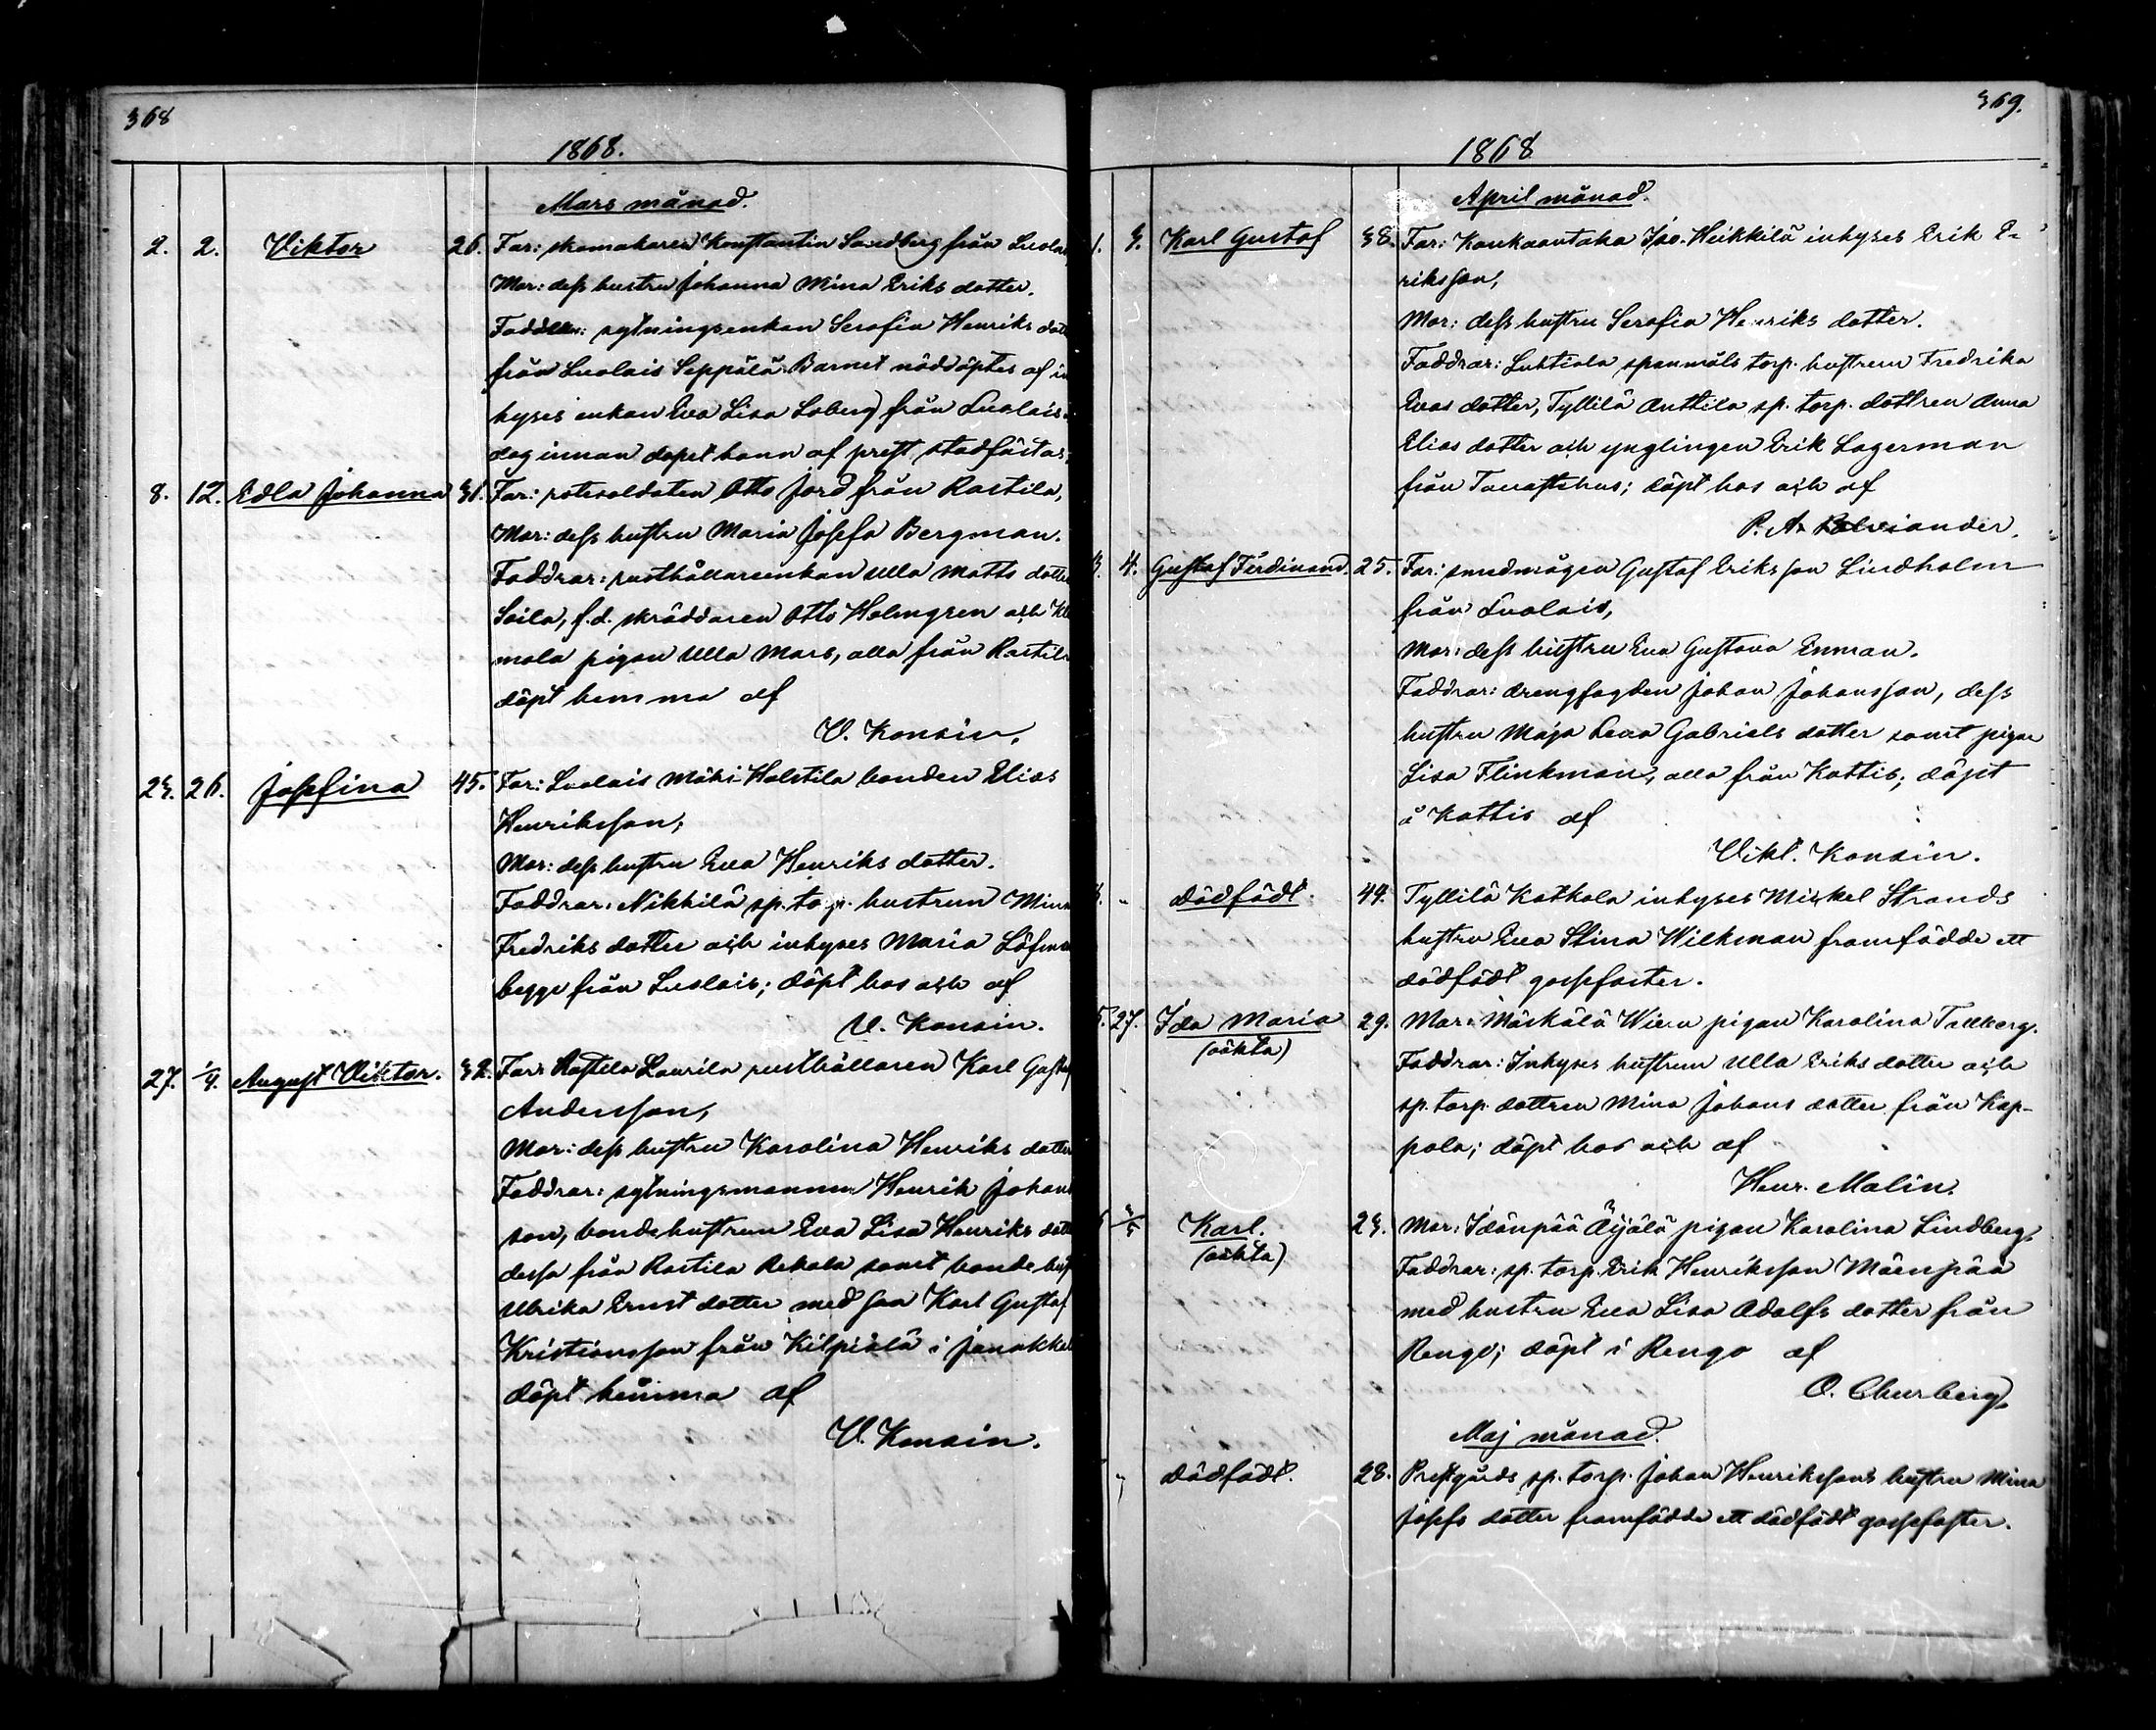 368
1868.
Mars månad.
2. 2. Viktor 26. Far: skomakaren Konstantin Sandberg från Luolais
Mor: dess hustru Johanna Mina Eriks dotter.
Faddrar: sytningsenkan Serafia Henriks dott
från Luolais Seppälä. Barnet nöddöptes af in
hyses enkan Eva Lisa Loberg från Luolais
dog innan dopet hann af prest stadfästas.
8. 12. Edla Johanna 31. Far: rotesoldaten Otto Jord från Rastila,
Mor: dess hustru Maria Josefa Bergman.
Faddrar: rusthållarenkan Ulla Matts dotter
Soila, f.d. skräddaren Otto Holmgren och
mola pigan Ulla Mars, alla från Rastila
döpt hemma af
V. Konsin.
23. 26. Josefina 45. Far: Luolais Mäki Holstila bonden Elias
Henriksson;
Mor: dess hustru Eva Henriks dotter.
Faddrar: Nikkilä sp. torp. hustrun Mina
Fredriks dotter och inhyses Maria Löfman
begge från Luolais; döpt hos och af
V. Konsin.
27. 1/4. August Viktor. 32. Far: Rastila Laurila rusthållaren Karl Gustaf
Andersson,
Mor: dess hustru Karolina Henriks dotter
Faddrar: sytningsmannen Henrik Johans
son, bondehustrun Eva Lisa Henriks dott
dessa från Rastila Rekola samt bonde hust
Ulrika Ernst dotter med son Karl Gustaf
Kristiansson från Kilpiälä i Janakkala
döpt hemma af
V. Konsin.
369.
1868
April månad.
1. 3. Karl Gustaf 38. Far: Kankaantaka Ipo. Heikkilä inhyses Erik E-
riksson,
Mor: dess hustru Serafia Henriks dotter.
Faddrar: Luhtiala spanmåls torp. hustrun Fredrika
Evas dotter, Tyllilä Anttila sp. torp. dottren Anna
Elias dotter och ynglingen Erik Lagerman
från Tavastehus; döpt hos och af
P. A.
3. 4. Gustaf Ferdinand. 25. Far: smedmågen Gustaf Eriksson Lindholm
från Luolais,
Mor: dess hustru Eva Gustava Enman.
Faddrar: drengfogden Johan Johansson, dess
hustru Maja Lena Gabriels dotter samt pigan
Lisa Flinkman, alla från Kattis; döpt
å Kattis af
Vikt. Konsin.
" dödfödt. 44. Tyllilä Katkola inhyses Mickel Strands
hustru Eva Stina Wilkman framfödde ett
dödfödt gossefoster.
5. 27. Ida Maria 29. Mor: Mäskälä Wieru pigan Karolina Tallberg.
(oäkta) Faddrar: Inhyses hustrun Ulla Eriks dotter och
sp. torp. dottren Mina Johans dotter från Kap-
pola; döpt hos och af
Henr. Malin.
3/5 Karl. 23. Mor: Idänpää Äijälä pigan Karolina Lindberg.
(oäkta) Faddrar: sp. torp. Erik Henriksson Mäenpää
med hustru Eva Lisa Adolfs dotter från
Rengo; döpt i Rengo af
O. Churberg.
Maj månad.
dödfödt. 28. Prestgårds sp. torp. Johan Henrikssons hustru Mina
Josefs dotter framfödde ett dödfödt gossefoster.